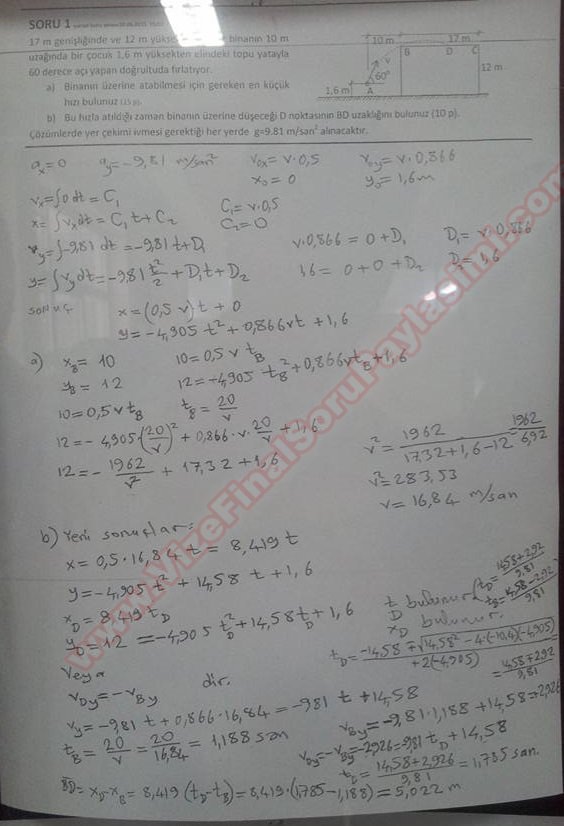 SORU 1
17 m genişliğinde ve 12 m binanın 10 m
uzağında bir çocuk 1,6 m yüksekten elindeki topu yatayla
60 derece açı yapan doğrultuda fırlatıyor.
a) Binanın üzerine atabilmesi için gereken en küçük
hızı bulunuz (15 p).
b) Bu hızla atıldığı zaman binanın üzerine düşeceği D noktasının BD uzaklığını bulunuz (10 p).
Çözümlerde yer çekimi ivmesi gerektiği her yerde g=9.81 m/san² alınacaktır.
10 m 17 m
B D C
v
60°
12 m
1,6 m A
ax=0 ay=-9,81 m/san² v0x=v.0,5 v0y=v.0,866
x0=0 y0=1,6m
vx=∫0dt=C1 C1=v.0,5
x=∫vxdt=C1t+C2 C2=0
vy=∫-9,81dt=-9,81t+D1 v.0,866=0+D1 D1=v.0,866
y=∫vydt=-9,81 t²/2+D1t+D2 1,6=0+0+D2 D2=1,6
sonuç x=(0,5 v)t+0
y=-4,905t²+0,866vt+1,6
a) xB=10 10=0,5vtB
yB=12 12=-4,905tB²+0,866vtB+1,6
10=0,5vtB tB=20/v
12=-4,905(20/v)²+0,866.v.20/v+1,6
12=-1962/v²+17,32+1,6
v²=1962/(17,32+1,6-12)=1962/6,92
v²=283,53
v=16,84 m/san
b) Yeni sonuçlar:
x=0,5.16,84t=8,419t
y=-4,905t²+14,58t+1,6
xD=8,419tD
yD=12=-4,905tD²+14,58tD+1,6
t bulunur (tD=(14,58+2,92)/9,81
tB=(14,58-2,92)/9,81
D
xD bulunur.
tD=(-14,58+√(14,58²-4.(-10,4)(-4,905)))/(+2(-4,905))
=(14,58+2,92)/9,81
Veya
vDy=-vBy dir.
vy=-9,81t+0,866.16,84=-9,81t+14,58
tB=20/v=20/16,84=1,188 san
vBy=-9,81.1,188+14,58=2,926
vDy=-vBy=-2,926=-9,81tD+14,58
tD=(14,58+2,926)/9,81=1,785 san.
BD=xD-xB=8,419(tD-tB)=8,419.(1,785-1,188)=5,022 m
www.VizeFinalSoruPaylasimi.com